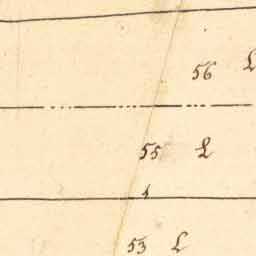 56 L
55 L
53 L